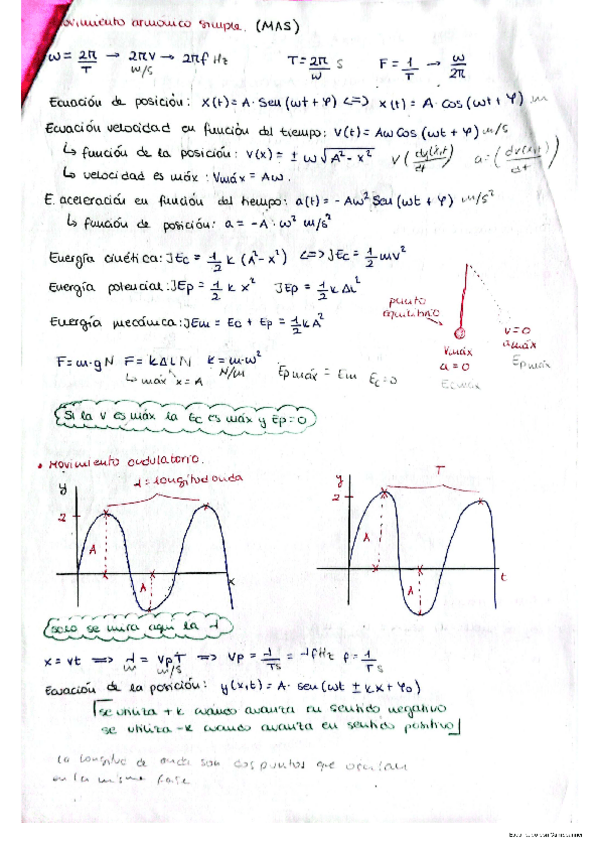 Movimiento armónico simple. (MAS)
ω = 2π/T → 2πν → 2πf Hz   T = 2π/ω s   F = 1/T → ω/2π
Ecuación de posición: x(t) = A· Sen (ωt + φ) <=> x(t) = A· Cos (ωt + φ) m
Ecuación velocidad en función del tiempo: v(t) = Aω Cos (ωt + φ) m/s
↳ función de la posición: v(x) = ± ω√A²-x²   v (dy(x,t)/dt)   a = (dv(x,t)/dt)
↳ velocidad es máx: Vmáx = Aω.
E. aceleración en función del tiempo: a(t) = - Aω² Sen (ωt + φ) m/s²
↳ función de posición: a = -A · ω² m/s²
Energía cinética: JEc = 1/2 k (A²-x²) <=> JEc = 1/2 mv²
Energía potencial: JEp = 1/2 k x²   JEp = 1/2 k ΔL²
Energía mecánica: JEm = Ec + Ep = 1/2 k A²
punto
equilibrio
Vmáx
a = 0
Ecmáx
v = 0
amáx
Epmáx
F = m·g N   F = kΔL N   k = m·ω²
N/m
↳ máx x = A
Epmáx = Em   Ec = 0
Si la v es máx la Ec es máx y Ep = 0
• Movimiento ondulatorio.
y
λ = longitud onda
2
A
A
x
y
T
2
A
A
t
solo se mira aquí la λ
x = vt => λ = Vp T => Vp = λ/T s = λf Hz   f = 1/T s
m   m/s
Ecuación de la posición: y(x,t) = A· sen (ωt ± kx + φo)
se utiliza + k cuando avanza en sentido negativo
se utiliza - k cuando avanza en sentido positivo
La longitud de onda son dos puntos que oscilan
en la misma fase